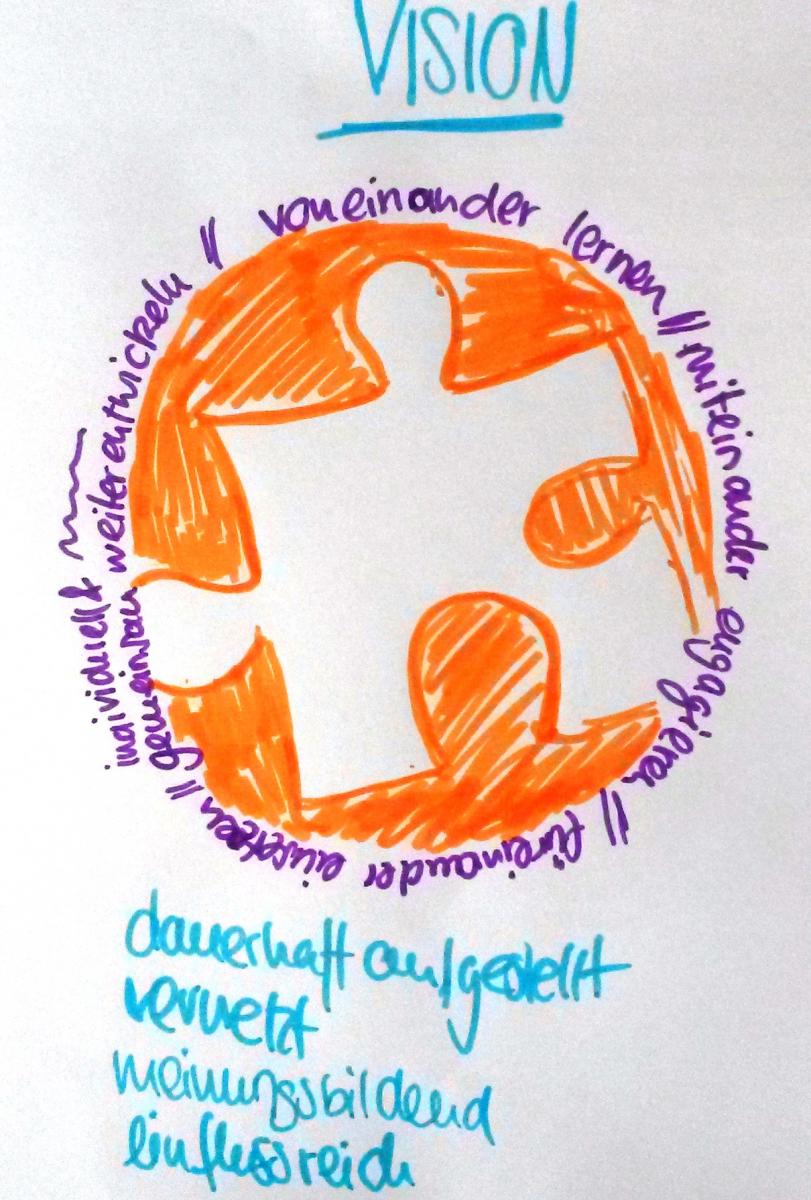 VISION
voneinander lernen // miteinander engagieren // füreinander einsetzen // gemeinsam weiterentwickeln //
individuell &
dauerhaft aufgestellt
vernetzt
meinungsbildend
einflussreich